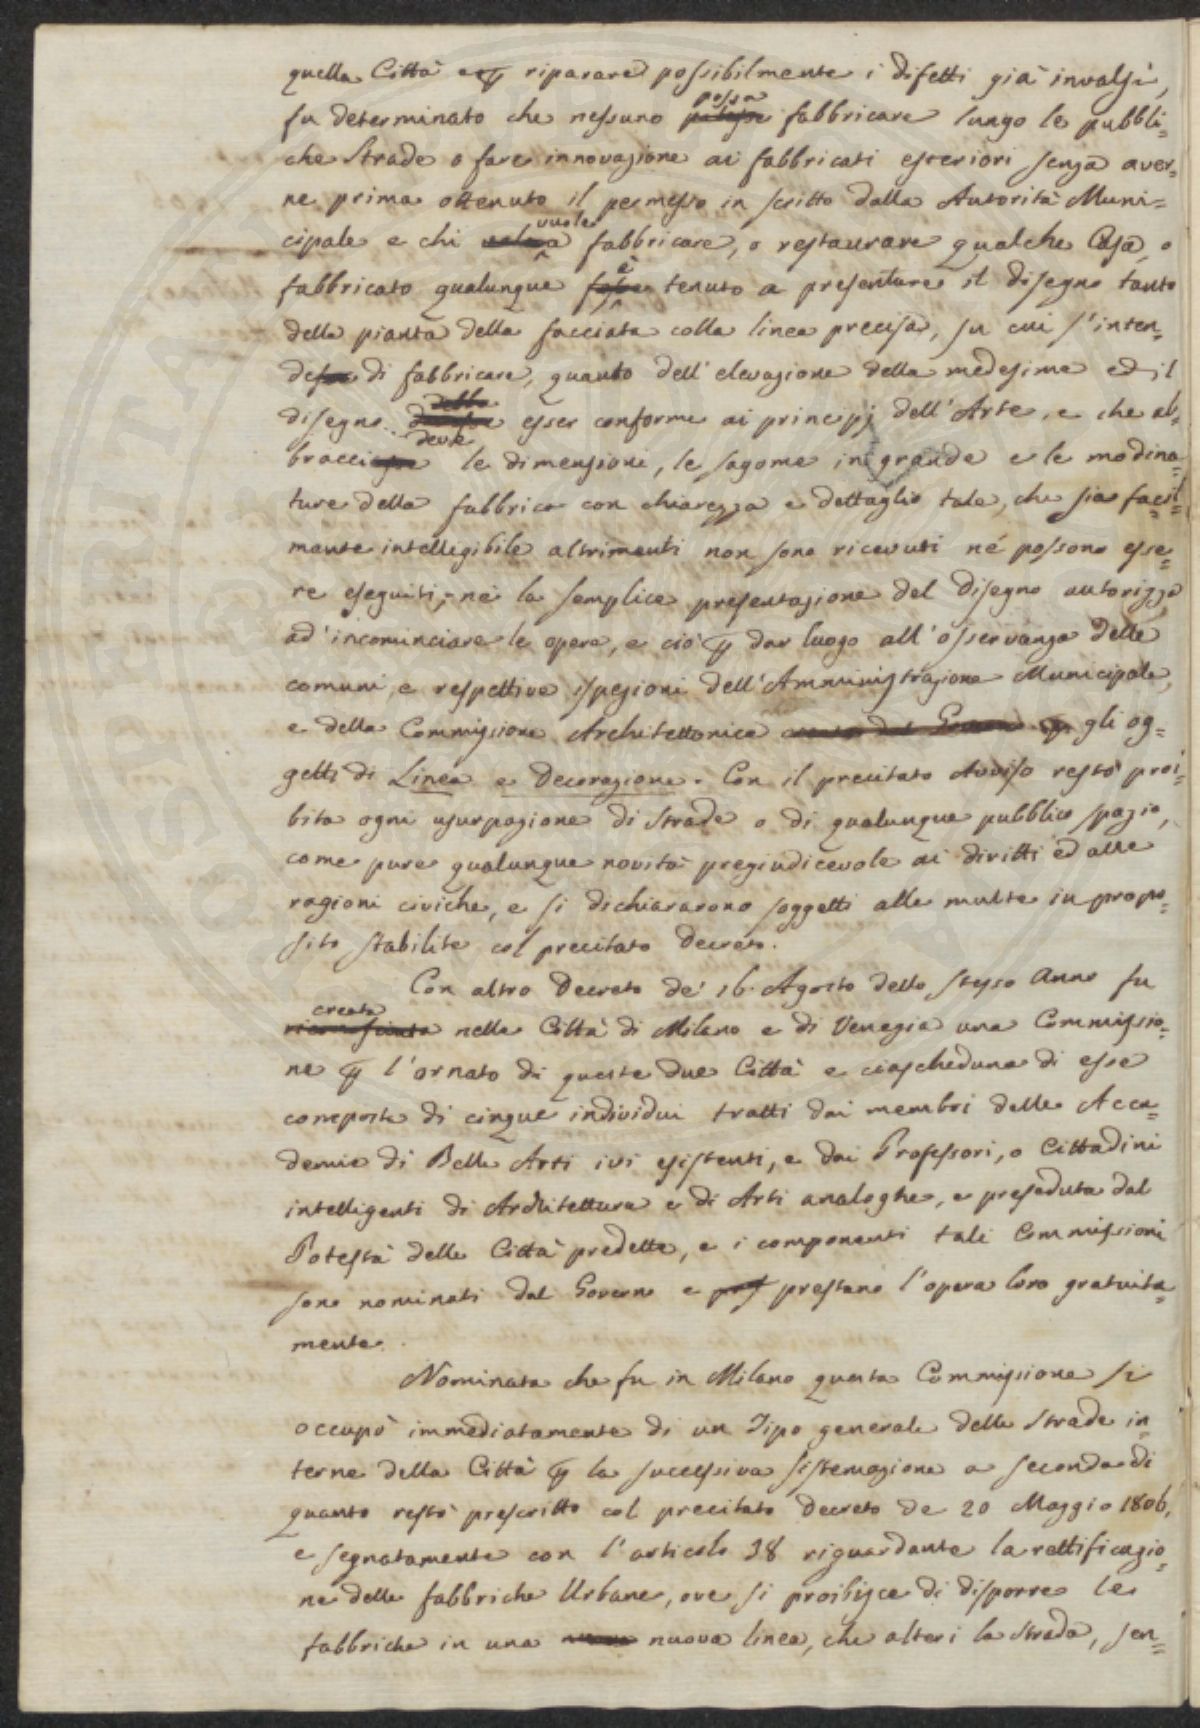 quella Città e ꝑ riparare possibilmente i difetti già invalsi,
fu determinato che nessuno possa fabbricare lungo le pubbli=
che Strade o fare innovazione ai fabbricati esteriori senza aver=
ne prima ottenuto il permesso in scritto dalla Autorità Muni=
cipale e chi vuole fabbricare, o restaurare qualche Casa, o
fabbricato qualunque è tenuto a presentare il disegno tanto
della pianta della facciata colla linea precisa, su cui s'inten=
de di fabbricare, quanto dell'elevazione della medesima ed il
disegno deve esser conforme ai principj dell'Arte, e che ab=
bracci le dimensioni, le sagome in grande e le modina=
ture della fabbrica con chiarezza e dettaglio tale, che sia facil=
mente intellegibile altrimenti non sono ricevuti né possono esse=
re eseguiti, né la semplice presentazione del disegno autorizza
ad'incominciare le opere, e ciò ꝑ dar luogo all'osservanza delle
comuni, e respettive ispezioni dell'Amministrazione Municipale,
e della Commissione Architettonica ꝑ gli og=
getti di Linea e Decorazione. Con il precitato Avviso restò proi=
bita ogni usurpazione di Strade o di qualunque pubblico spazio,
come pure qualunque novità pregiudicevole ai diritti ed alle
ragioni civiche, e si dichiararono soggetti alle multe in propo=
sito stabilite col precitato Decreto.
Con altro Decreto de' 16. Agosto dello stesso Anno fu
creata nelle Città di Milano e di Venezia una Commissio=
ne ꝑ l'ornato di queste due Città e ciascheduna di esse
composta di cinque individui tratti dai membri delle Acca=
demie di Belle Arti ivi esistenti, e dai Professori, o Cittadini
intelligenti di Architettura e di Arti analoghe, e preseduta dal
Potestà delle Città predette, e i componenti tali Commissioni
sono nominati dal Governo e prestano l'opera loro gratuita=
mente.
Nominata che fu in Milano questa Commissione si
occupò immediatamente di un Tipo generale delle Strade in=
terne della Città ꝑ la successiva sistemazione a seconda di
quanto restò prescritto col precitato Decreto de 20 Maggio 1806,
e segnatamente con l'articolo 38 riguardante la rettificazio=
ne delle fabbriche Urbane, ove si proibisce di disporre le
fabbriche in una nuova linea, che alteri la Strada, sen=